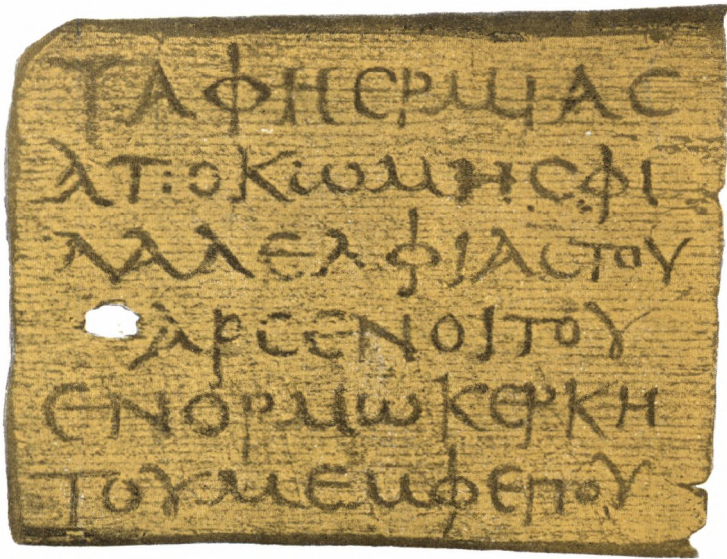 ΤΑΦΗΕΡΜΙΑC
ΑΠΟΚΩΜΗCΦΙ
ΛΑΔΕΛΦΙΑCΤΟΥ
ΑΡCΕΝΟΙΤΟΥ
ΕΝΟΡΜΩΚΕΡΚΗ
ΤΟΥΜΕΜΦΕΙΤΟΥ